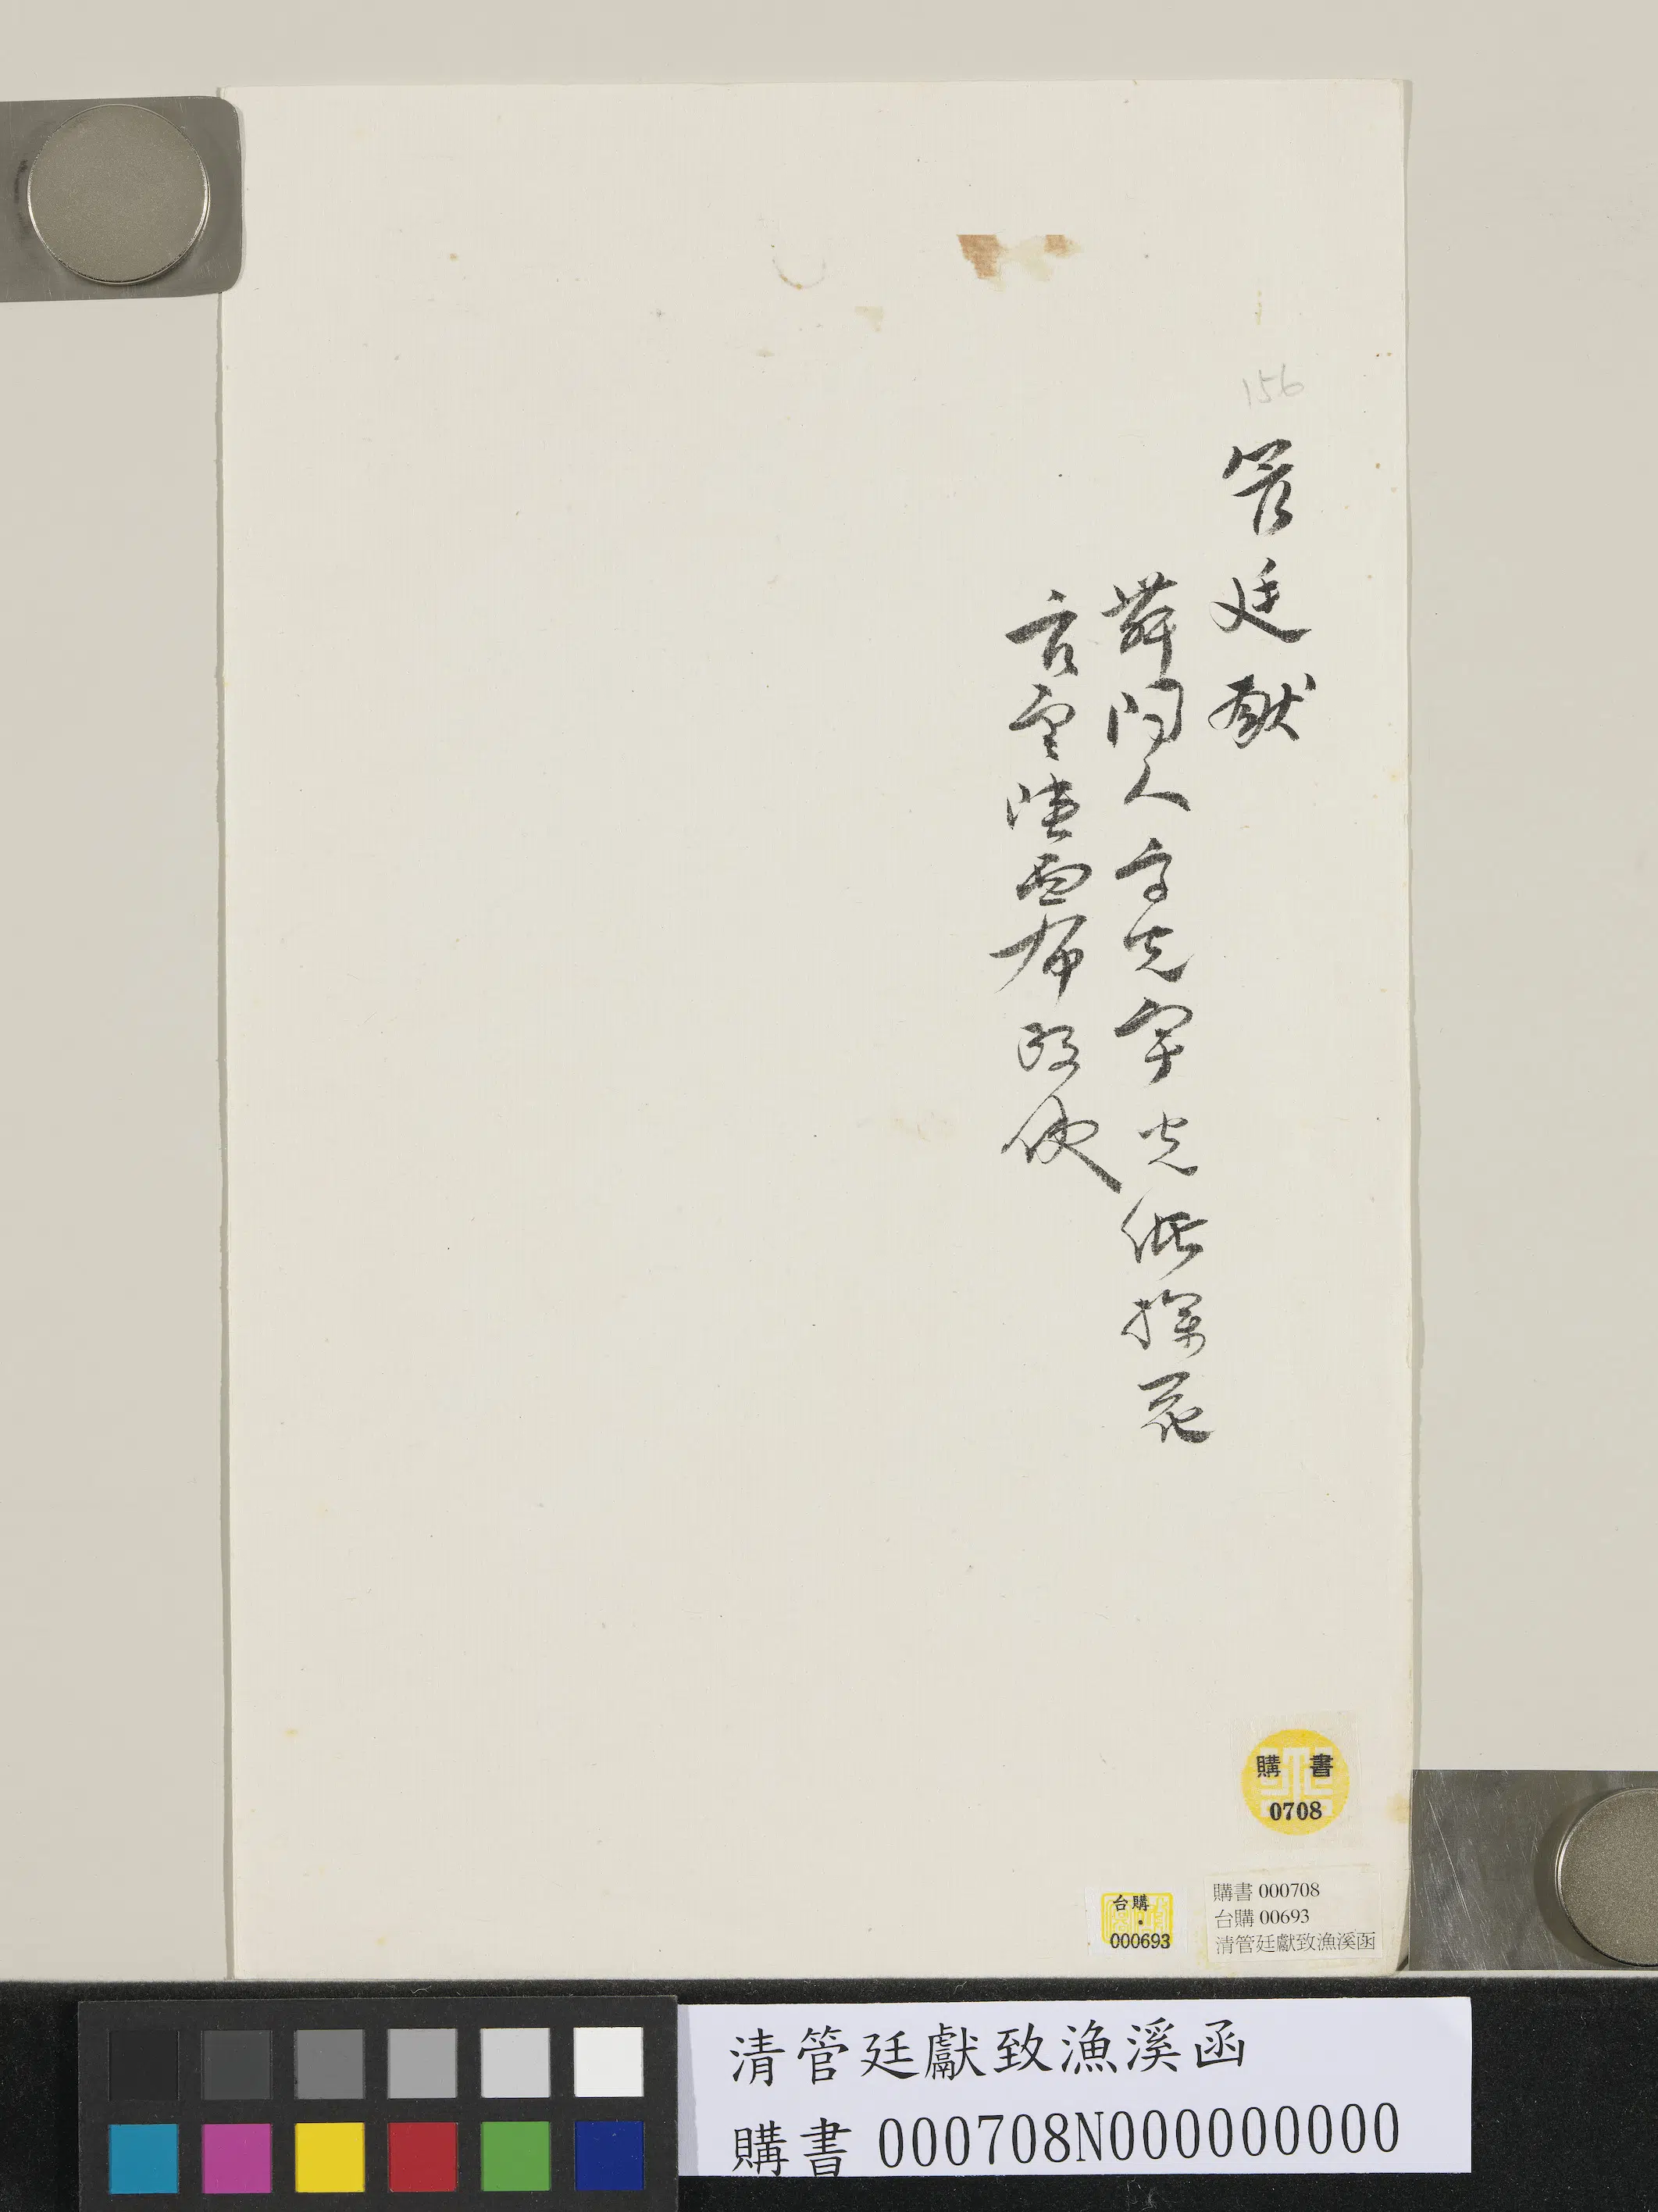 156
管廷獻
人字光緒探花
官至陝西布政使
購書
0708
台購
000693
購書 000708
台購 00693
清管廷獻致漁溪函
清管廷獻致漁溪函
購書 000708N000000000